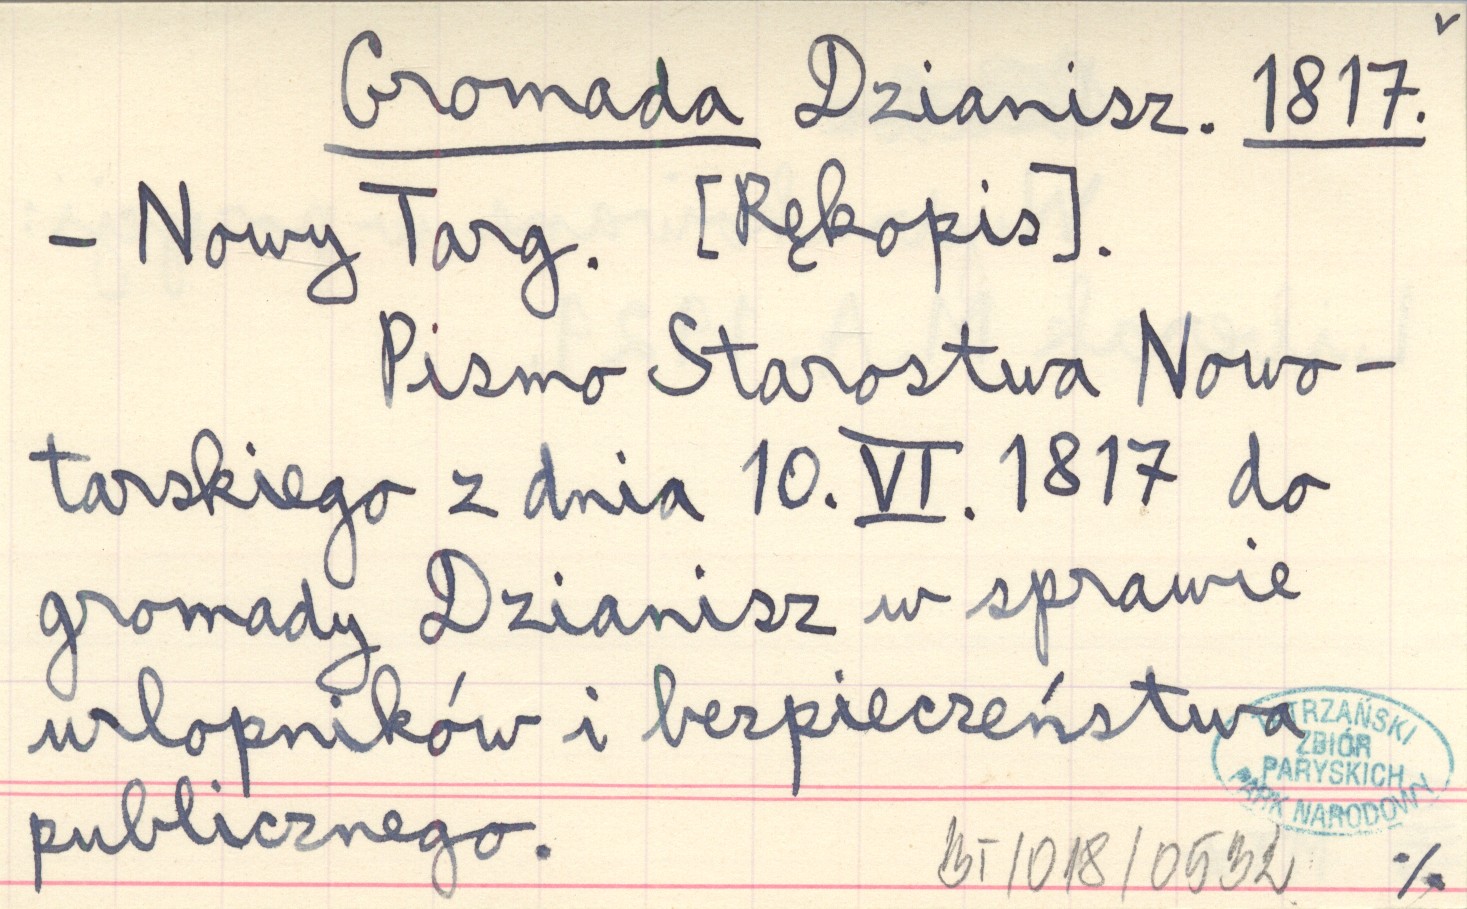 Gromada Dzianisz. 1817.
- Nowy Targ. [Rękopis].
Pismo Starostwa Nowo-
tarskiego z dnia 10.VI.1817 do
gromady Dzianisz w sprawie
urlopników i bezpieczeństwa
publicznego.
TATRZAŃSKI
ZBIÓR
PARYSKICH
PARK NARODOWY
BT/018/0532
./.